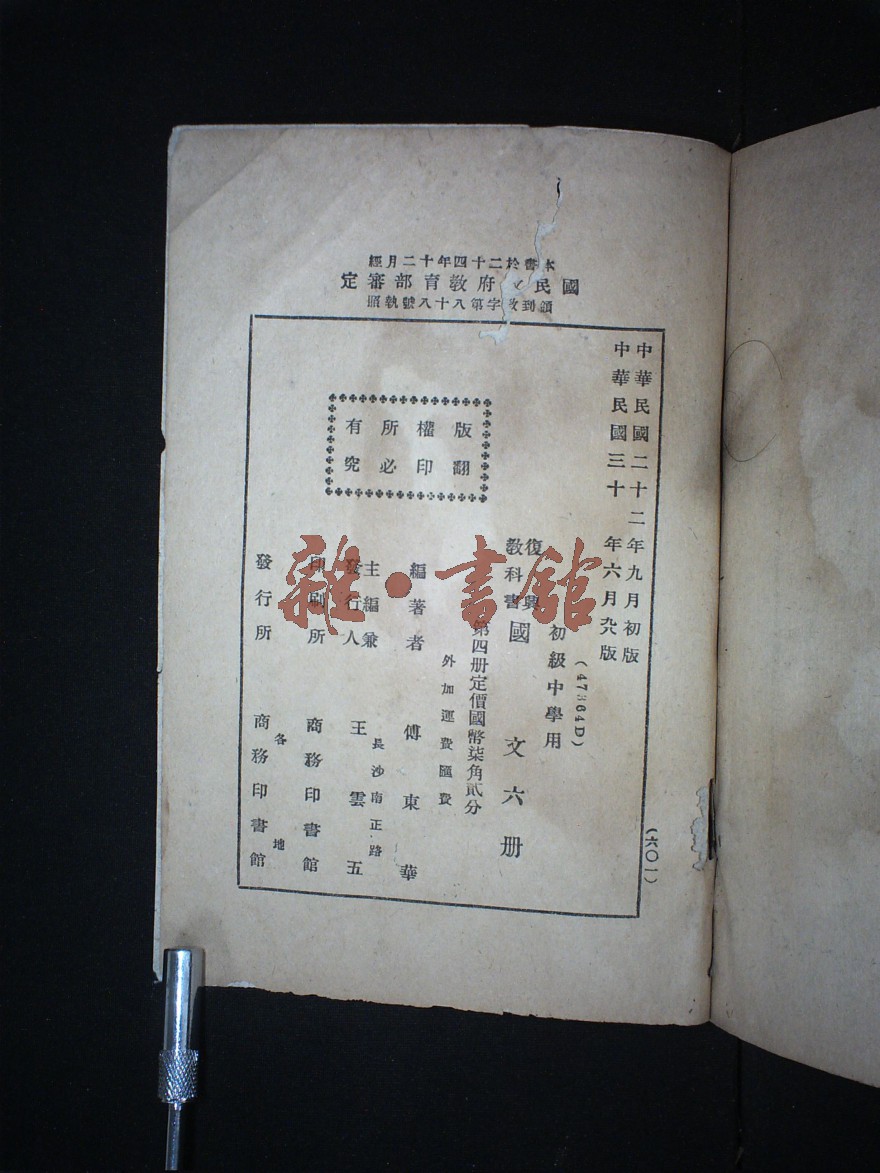 本書於二十四年十二月經
國民 府教育部審定
領到教字第八十八號執照
中華民國二十二年九月初版
中華民國三十年六月九版
(六〇一)
版權所有
翻印必究
(47864D)
初級中學用
復興
教科書
國文六册
第四册定價國幣柒角貳分
外加運費匯費
編著者 傅東華
主編兼
發行人
長沙南正路
王雲五
印刷所 商務印書館
發行所 各地
商務印書館
雜·書館